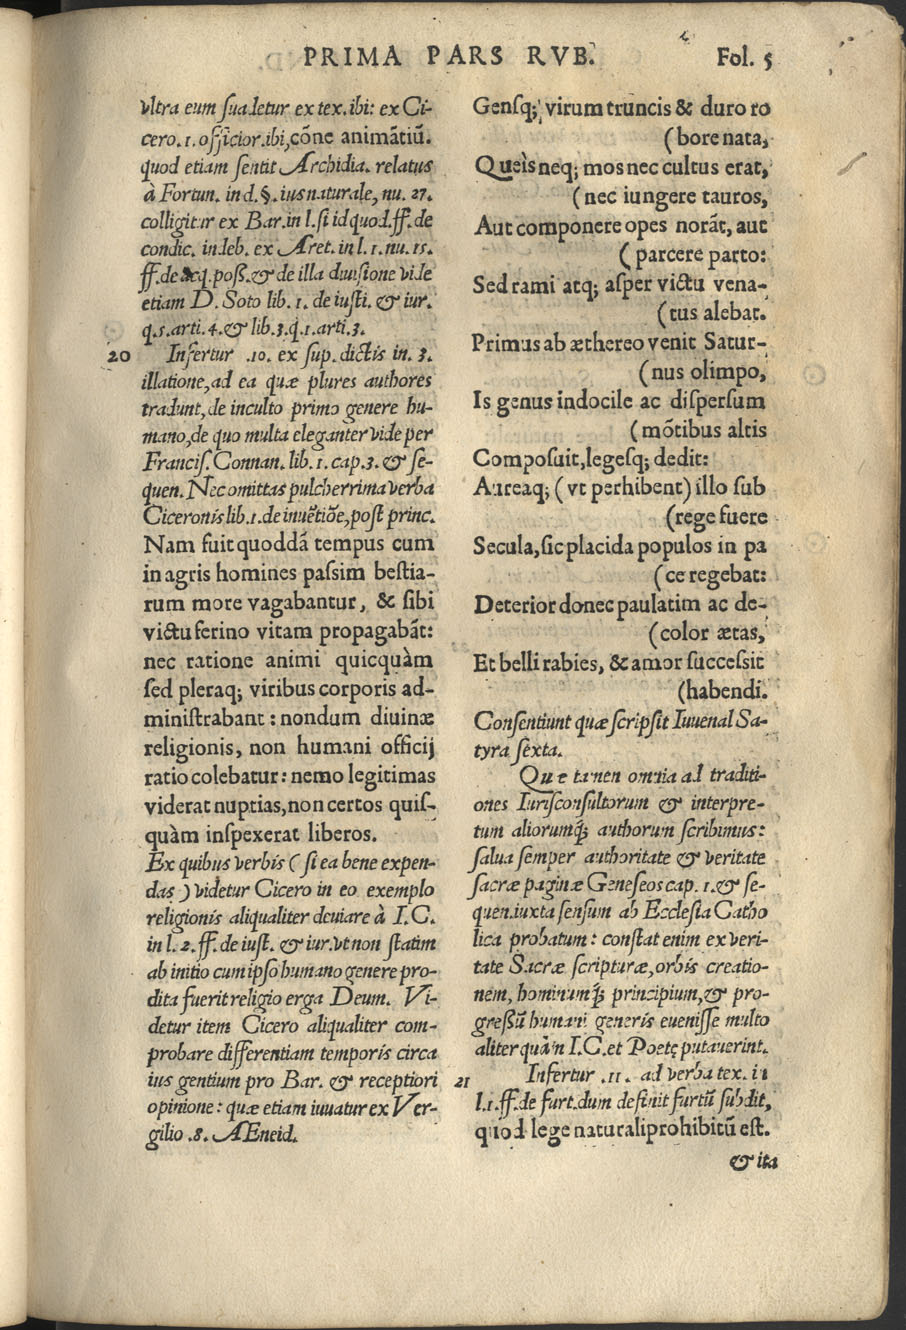 PRIMA PARS RVB. Fol. 5
vltra eum suadetur ex tex. ibi: ex Ci-
cero. 1. officior. ibi, cõne animãtiũ.
quod etiam sentit Archidia. relatus
à Fortun. in d. §. ius naturale, nu. 27.
colligitur ex Bar. in l. si id quod. ff. de
condic. indeb. ex Aret. in l. 1. nu. 15.
ff. de acq. poss. & de illa diuisione vide
etiam D. Soto lib. 1. de iusti. & iur.
q. 5. arti. 4. & lib. 3. q. 1. arti. 3.
20 Infertur .10. ex sup. dictis in. 3.
illatione, ad ea quæ plures authores
tradunt, de inculto primo genere hu-
mano, de quo multa eleganter vide per
Francis. Connan. lib. 1. cap. 3. & se-
quen. Nec omittas pulcherrima verba
Ciceronis lib. 1. de inuẽtiõe, post princ.
Nam fuit quoddã tempus cum
in agris homines passim bestia-
rum more vagabantur, & sibi
victu ferino vitam propagabãt:
nec ratione animi quicquàm
sed pleraq; viribus corporis ad-
ministrabant: nondum diuinæ
religionis, non humani officij
ratio colebatur: nemo legitimas
viderat nuptias, non certos quis-
quàm inspexerat liberos.
Ex quibus verbis (si ea bene expen-
das) videtur Cicero in eo exemplo
religionis aliqualiter deuiare à I.C.
in l. 2. ff. de iust. & iur. vt non statim
ab initio cum ipso humano genere pro-
dita fuerit religio erga Deum. Vi-
detur item Cicero aliqualiter com-
probare differentiam temporis circa
ius gentium pro Bar. & receptiori
opinione: quæ etiam iuuatur ex Ver-
gilio .8. AEneid.
Gensq; virum truncis & duro ro
(bore nata,
Queìs neq; mos nec cultus erat,
(nec iungere tauros,
Aut componere opes norãt, aut
(parcere parto:
Sed rami atq; asper victu vena-
(tus alebat.
Primus ab æthereo venit Satur-
(nus olimpo,
Is genus indocile ac dispersum
(mõtibus altis
Composuit, legesq; dedit:
Aureaq; (vt perhibent) illo sub
(rege fuere
Secula, sic placida populos in pa
(ce regebat:
Deterior donec paulatim ac de-
(color ætas,
Et belli rabies, & amor successit
(habendi.
Consentiunt quæ scripsit Iuuenal Sa-
tyra sexta.
Quæ tamen omnia ad traditi-
ones Iurisconsultorum & interpre-
tum aliorumq; authorum scribimus:
salua semper authoritate & veritate
sacræ paginæ Geneseos cap. 1. & se-
quen. iuxta sensum ab Ecclesia Catho
lica probatum: constat enim ex veri-
tate Sacræ scripturæ, orbis creatio-
nem, hominumq; principium, & pro-
gressũ humani generis euenisse multo
aliter quàm I.C. et Poetę putauerint.
21 Infertur .11. ad verba tex. in
l. 1. ff. de furt. dum definit furtũ subdit,
quod lege naturali prohibitũ est.
& ita